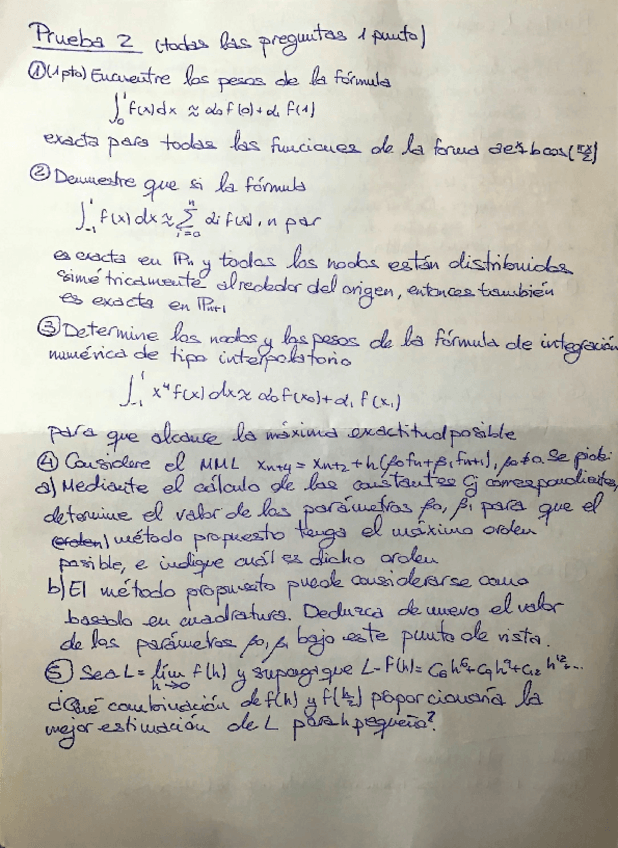 Prueba 2 (todas las preguntas 1 punto)
① (1pto) Encuentre los pesos de la fórmula
∫₀¹ f(x)dx ≈ α₀f(0)+α₁ f(1)
exacta para todas las funciones de la forma aeˣ+bcos(πx/2)
② Demuestre que si la fórmula
∫₋₁¹ f(x)dx ≈ ∑ᵢ₌₀ⁿ αᵢ f(xᵢ), n par
es exacta en ℙₙ y todos los nodos están distribuidos
simétricamente alrededor del origen, entonces también
es exacta en ℙₙ₊₁
③ Determine los nodos y los pesos de la fórmula de integración
numérica de tipo interpolatorio
∫₋₁¹ x⁴f(x)dx ≈ α₀f(x₀)+α₁ f(x₁)
para que alcance la máxima exactitud posible
④ Considere el MML xₙ₊₄ = xₙ₊₂ + h(β₀fₙ+β₁fₙ₊₁), β₀≠0. Se pide:
a) Mediante el cálculo de las constantes Cj correspondientes,
determine el valor de los parámetros β₀, β₁ para que el
(orden) método propuesto tenga el máximo orden
posible, e indique cuál es dicho orden
b) El método propuesto puede considerarse como
basado en cuadratura. Deduzca de nuevo el valor
de los parámetros β₀, β₁ bajo este punto de vista.
⑤ Sea L = lím h→0 f(h) y supongique L-f(h)= C₆h⁶+C₉h⁹+C₁₂h¹²+...
¿Qué combinación de f(h) y f(h/2) poporcionaría la
mejor estimación de L para h pequeño?